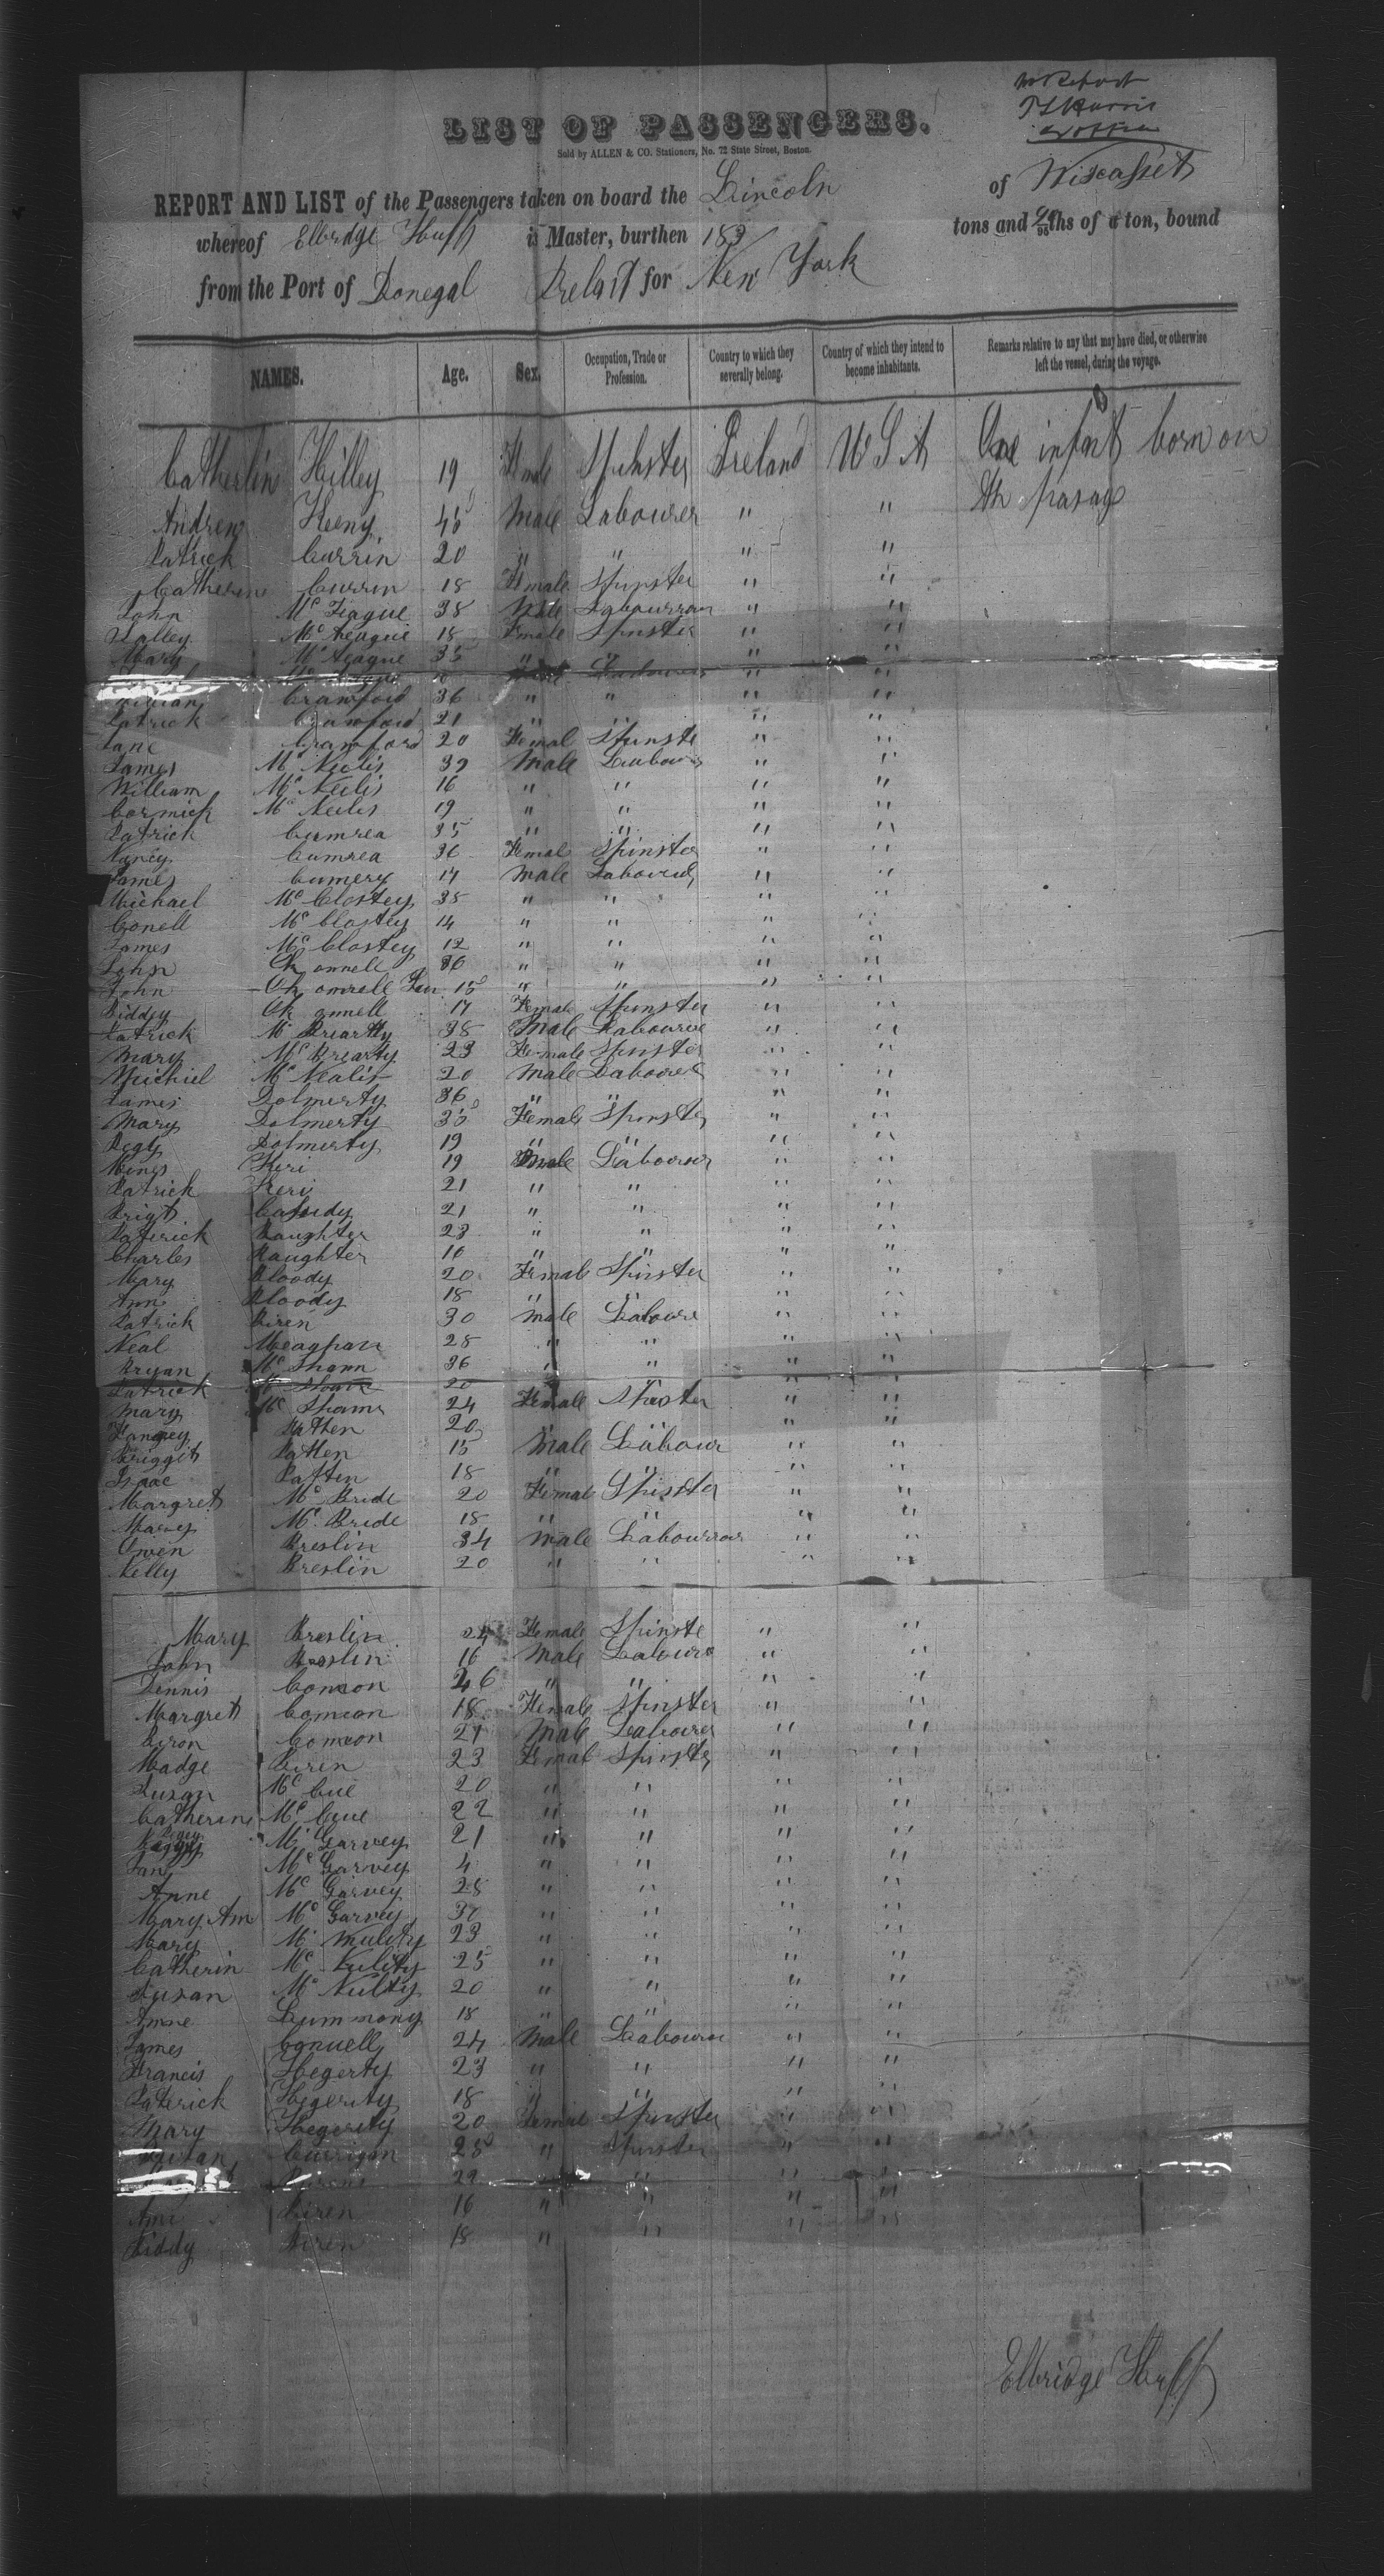 LIST OF PASSENGERS.
Sold by ALLEN & CO. Stationers, No. 72 State Street, Boston.
REPORT AND LIST of the Passengers taken on board the Lincoln of Wiscasset
whereof Elbridge Huff is Master, burthen 189 tons and 95ths of a ton, bound
from the Port of Donegal for New York
NAMES. Age. Sex. Occupation, Trade or Profession. Country to which they severally belong. Country of which they intend to become inhabitants. Remarks relative to any that may have died, or otherwise left the vessel, during the voyage.
Catherlin Hilley 19 Female Spinster Ireland U S A One infant born on
Andrew Keeny 45 Male Labourer " " the pasage
Patrick Currin 20 " " " "
Catherine Currin 18 Female Spinster " "
John Mc Teague 38 Male Labourrer " "
Mc Teague 18 Female Spinster " "
Mary Mc Teague 35 " " " "
William Crawford 36 " " " "
Patrick Crawford 21 " " " "
Jane Crawford 20 Femal Spinste " "
James Mc Neelis 39 Male Labour " "
William Mc Neelis 16 " " " "
Cormick Mc Neelis 19 " " " "
Patrick Cumrea 35 " " " "
Nancy Cumrea 36 Female Spinster " "
James Cumery 14 Male Labourer " "
Michael Mc Clostey 38 " " " "
Conell Mc Clostey 14 " " " "
James Mc Clostey 12 " " " "
John Oh onnell 36 " " " "
John Oh onnell Jun 15 " " " "
Biddey Oh onnell 17 Female Spinster " "
Patrick Mc Brearty 38 Male Labourer " "
Mary Mc Brearty 23 Female Spinster " "
Michiel Mc Nealis 20 Male Labourer " "
James Dolmerty 36 " " " "
Mary Dolmerty 35 Female Spinster " "
Pegy Dolmerty 19 " " " "
Keri 19 Male Labourer " "
Patrick Keri 21 " " " "
Cassidy 21 " " " "
Paterick Baughter 23 " " " "
Charles Baughter 16 " " " "
Mary Bloody 20 Female Spinster " "
Ann Bloody 18 " " " "
Patrick Biren 30 Male Laboure " "
Neal Meaghan 28 " " " "
Bryan Mc Shann 36 " " " "
Patrick Mc Shane 20 " " " "
Mary Mc Shann 24 Female Spinster " "
Patten 20 " " " "
Briggit Patten 15 Male Labour " "
Isaac Patten 18 " " " "
Margret Mc Bride 20 Female Spinster " "
Mary Mc Bride 18 " " " "
Owen Breslin 34 Male Labourror " "
Nelly Breslin 20 " " " "
Mary Breslin 24 Female Spinste " "
John Breslin 16 Male Laboure " "
Dennis Comeon 26 " " " "
Margret Comeon 18 Female Spinster " "
Comeon 21 Male Labourer " "
Madge Biren 23 Femal Spinster " "
Susan Mc Cue 20 " " " "
Catherine Mc Cue 22 " " " "
Mc Garvey 21 " " " "
Jane Mc Garvey 4 " " " "
Anne Mc Garvey 28 " " " "
Mary Am Mc Garvey 30 " " " "
Mary Mc Nulity 23 " " " "
Catherin Mc Nulity 25 " " " "
Susan Mc Nulty 20 " " " "
Anne Lummony 18 " " " "
James Connell 24 Male Labourer " "
Francis Hegerty 23 " " " "
Paterick Hegerity 18 " " " "
Mary Hegerity 20 Female Spinster " "
Currigan 25 " Spinster " "
22 " " " "
Biren 16 " " " "
Biddy Biren 18 " "
Elbridge Huff